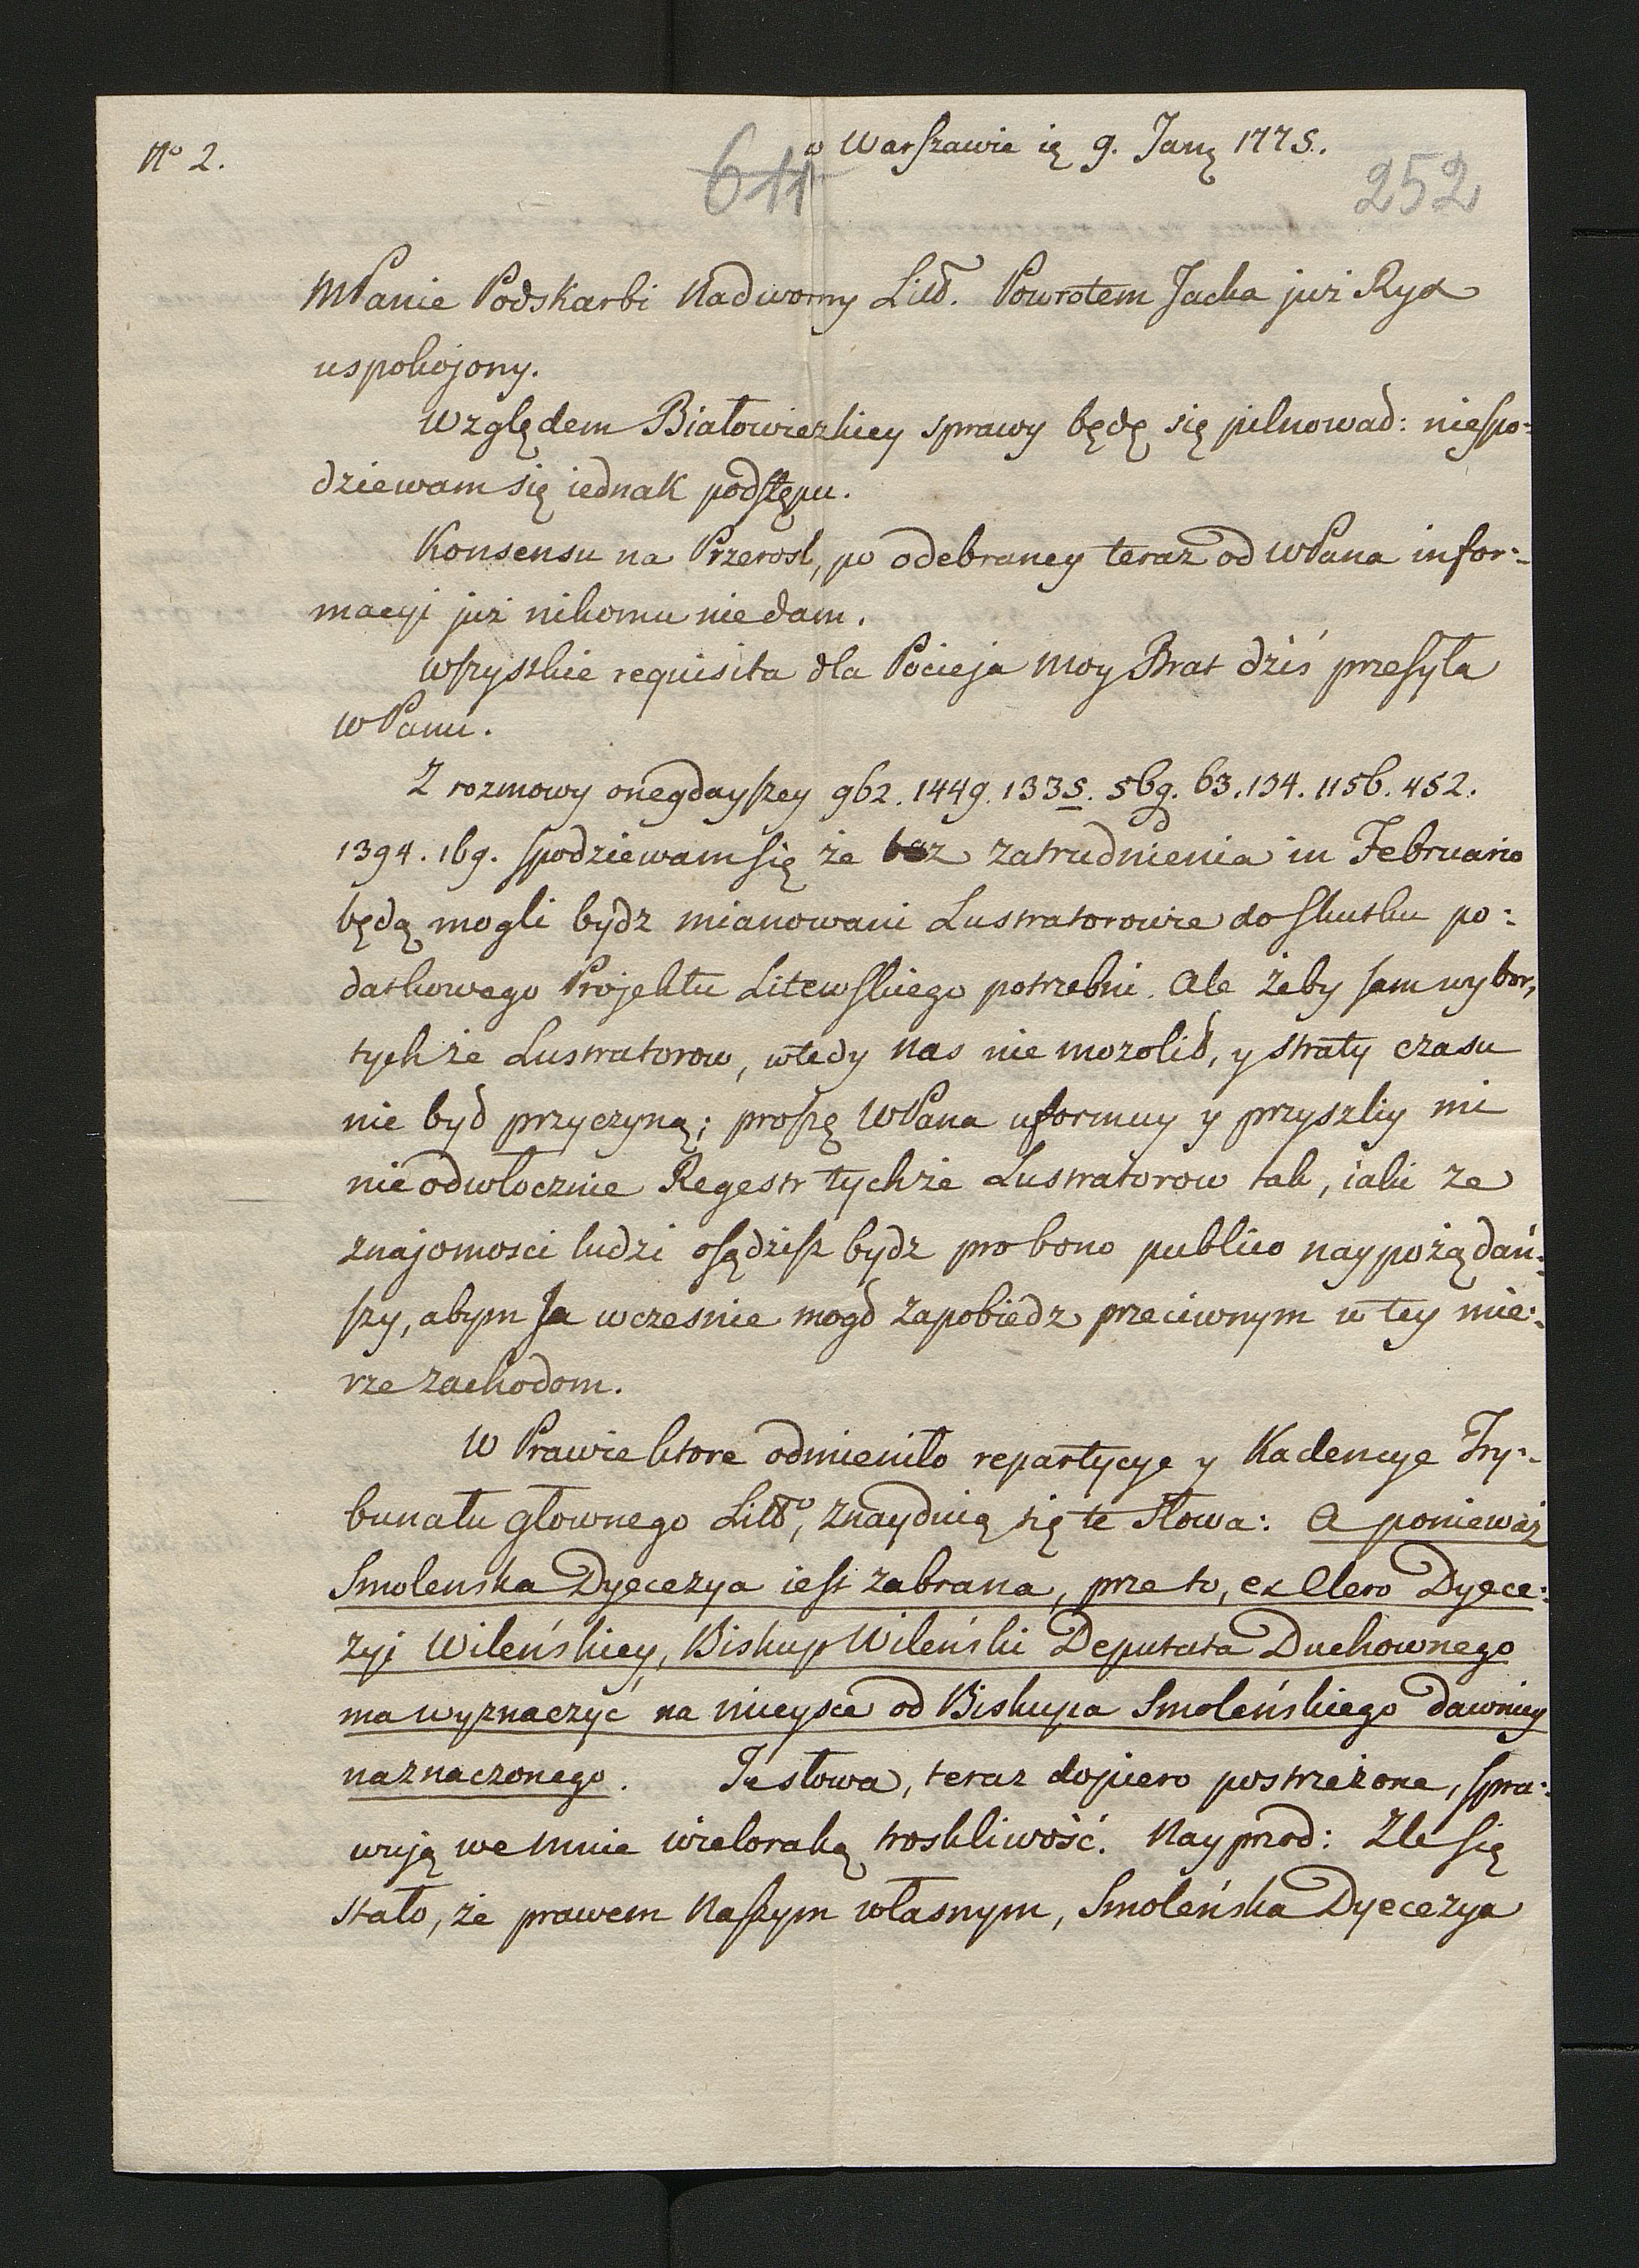 No 2.
w Warszawie ię 9. Jany 1775.
611
252
MPanie Podskarbi Nadworny Litt. Powrotem Jacka już Ryx
uspokojony.
Względem Białowiezkiey sprawy będę się pilnował: niespo:
dziewam się iednak podstępu.
Konsensu na Przerosl, po odebraney teraz od WPana infor:
macyi już nikomu nie dam.
Wszystkie requisita dla Pocieja moy Brat dziś przesyła
WPanu.
Z rozmowy onegdayszey 962. 1449. 1335. 569. 63. 134. 1156. 452.
1394. 169. spodziewam się że bez zatrudnienia in Februario
będą mogli bydz mianowani Lustratorowie do skutku po:
datkowego Projektu Litewskiego potrzebni. Ale żeby sam wybor,
tychże Lustratorow, wtedy nas nie mozolił, y straty czasu
nie był przyczyną; proszę WPana uformuy y przyszliy mi
nieodwłocznie Regestr tychże Lustratorow tak, iaki ze
znajomosci ludzi osądzisz bydz pro bono publico naypożądań:
szy, abym Ja wczesnie mogł zapobiedz przeciwnym w tey mie:
rze zachodom.
W Prawie ktore odmieniło repartycye y Kadencye Try:
bunału głownego Litto, znayduią się te słowa: A ponieważ
Smolenska Dyecezya iest zabrana, przeto, ex Clero Dyece:
zyi Wileńskiey, Biskup Wileński Deputata Duchownego
ma wyznaczyć na mieysce od Biskupa Smoleńskiego dawniey
naznaczonego. Te słowa, teraz dopiero postrzeżone, spra:
wują we mnie wieloraką troskliwość. Nayprzod: Zle się
stało, że prawem naszym własnym, Smoleńska Dyecezya